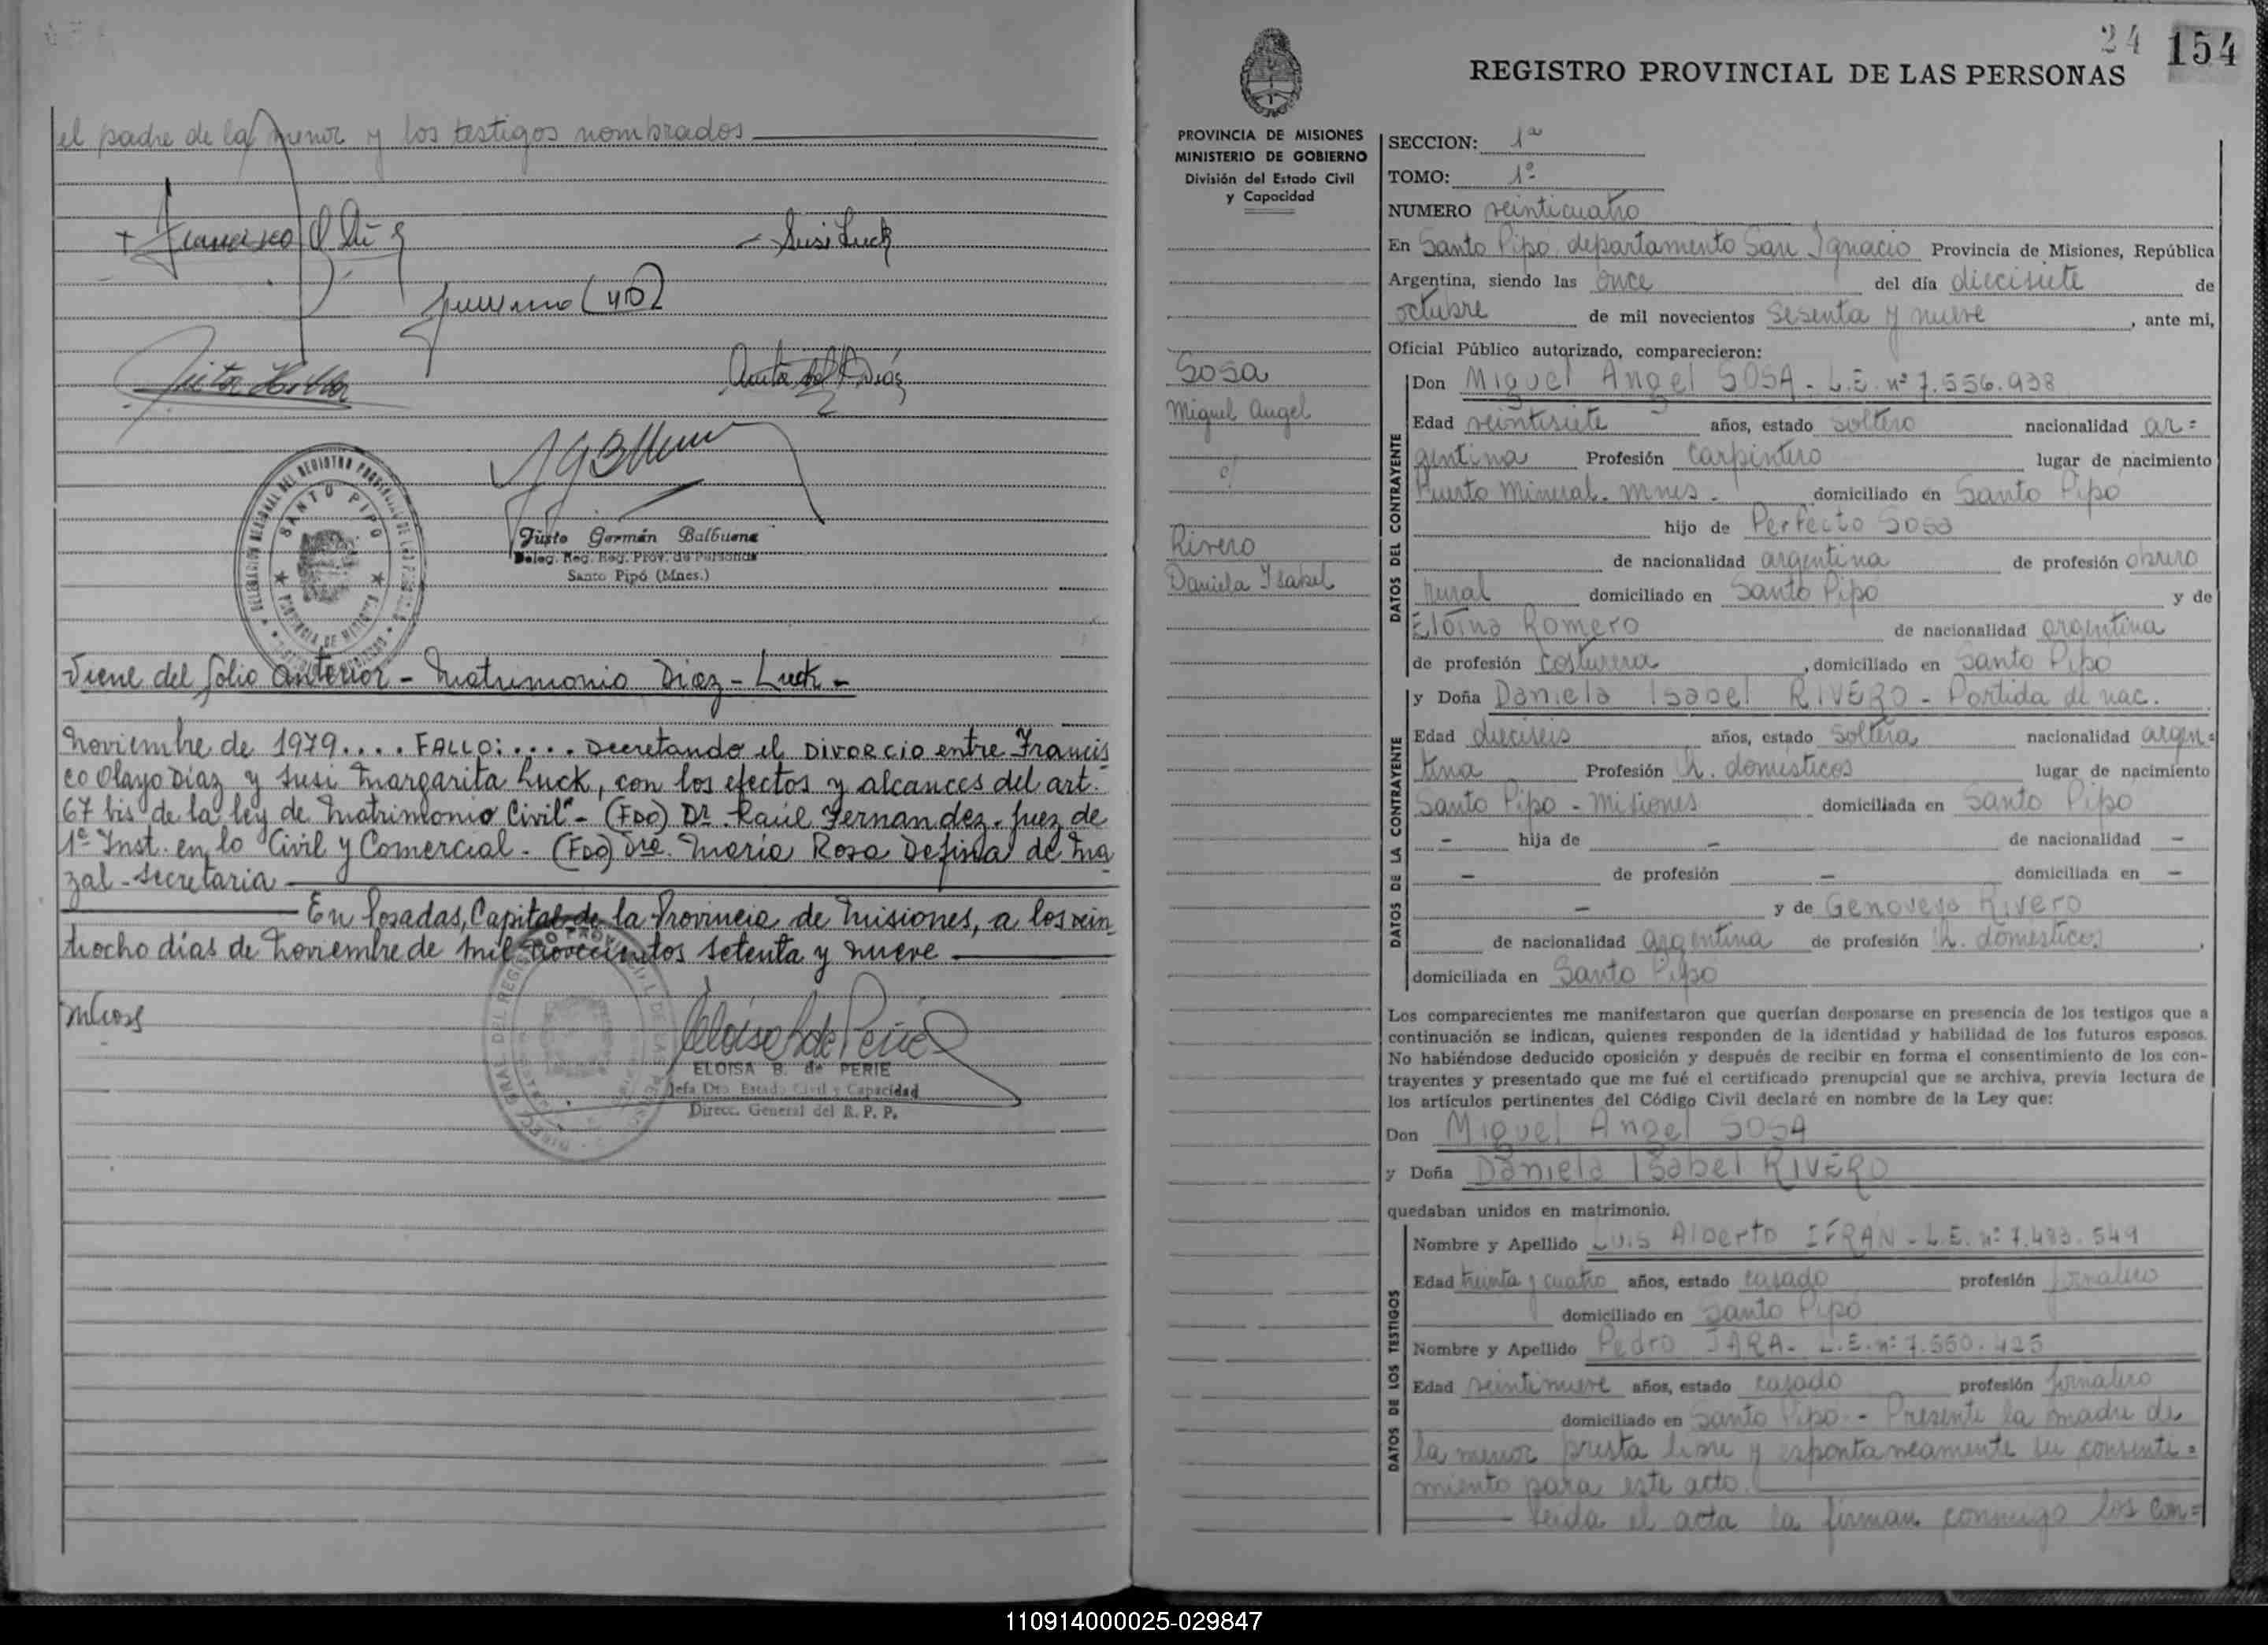 el padre de la menor y los testigos nombrados
Susi Luck
Justo Germán Balbuena
Deleg. Reg. Reg. Prov. de Personas
Santo Pipó (Mnes.)
DELEGACION REGIONAL DEL REGISTRO PROVINCIAL DE LAS PERSONAS
SANTO PIPO
PROVINCIA DE MISIONES
Viene del folio anterior - Matrimonio Diaz - Luck -
Noviembre de 1979.... FALLO:.... Decretando el Divorcio entre Francis
co Olayo Diaz y Susi Margarita Luck, con los efectos y alcances del art.
67 bis de la ley de Matrimonio Civil"- (FDO) Dr. Raúl Fernandez. Juez de
1º Inst. en lo Civil y Comercial - (FDO) Dra. Maria Rosa Defina de Ma
zal - Secretaria
En Posadas, Capital de la Provincia de Misiones, a los vein
tiocho días de Noviembre de mil novecientos setenta y nueve
ELOISA B. de PERIE
Jefa Dto. Estado Civil y Capacidad
Direcc. General del R. P. P.
24 154
REGISTRO PROVINCIAL DE LAS PERSONAS
PROVINCIA DE MISIONES
MINISTERIO DE GOBIERNO
División del Estado Civil
y Capacidad
Sosa
Miguel Angel
c/
Rivero
Daniela Isabel
SECCION: 1ª
TOMO: 1º
NUMERO veinticuatro
En Santo Pipo departamento San Ignacio Provincia de Misiones, República
Argentina, siendo las once del día diecisiete de
octubre de mil novecientos sesenta y nueve, ante mi,
Oficial Público autorizado, comparecieron:
DATOS DEL CONTRAYENTE
Don Miguel Angel SOSA - L.E. nº 7.556.938
Edad veintisiete años, estado soltero nacionalidad ar=
gentina Profesión carpintero lugar de nacimiento
Puerto Mineral. Mnes. domiciliado en Santo Pipo
hijo de Perfecto Sosa
de nacionalidad argentina de profesión obrero
rural domiciliado en Santo Pipo y de
Eloina Romero de nacionalidad argentina
de profesión costurera, domiciliado en Santo Pipo
DATOS DE LA CONTRAYENTE
y Doña Daniela Isabel RIVERO - Partida de nac.
Edad dieciseis años, estado soltera nacionalidad argen=
tina Profesión q. domésticos lugar de nacimiento
Santo Pipo - Misiones domiciliada en Santo Pipo
- hija de - de nacionalidad -
- de profesión - domiciliada en -
- y de Genoveva Rivero
de nacionalidad argentina de profesión q. domésticos,
domiciliada en Santo Pipo
Los comparecientes me manifestaron que querían desposarse en presencia de los testigos que a
continuación se indican, quienes responden de la identidad y habilidad de los futuros esposos.
No habiéndose deducido oposición y después de recibir en forma el consentimiento de los con-
trayentes y presentado que me fué el certificado prenupcial que se archiva, previa lectura de
los artículos pertinentes del Código Civil declaré en nombre de la Ley que:
Don Miguel Angel SOSA
y Doña Daniela Isabel RIVERO
quedaban unidos en matrimonio.
DATOS DE LOS TESTIGOS
Nombre y Apellido Luis Alberto IFRAN - L.E. nº 7.483.549
Edad treinta y cuatro años, estado casado profesión jornalero
domiciliado en Santo Pipó
Nombre y Apellido Pedro JARA - L.E. nº 7.550.425
Edad veintinueve años, estado casado profesión jornalero
domiciliado en Santo Pipó - Presente la madre de
la menor presta libre y espontaneamente su consenti=
miento para este acto.
Leida el acta la firman conmigo los con=
110914000025-029847